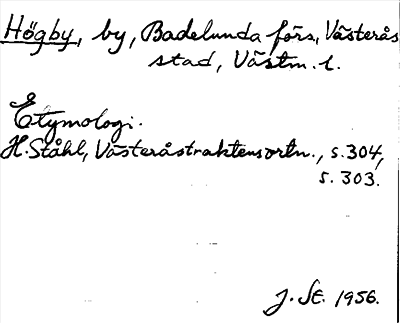 Högby, by, Badelunda förs., Västerås
stad, Västm. l.
Etymologi.
H. Ståhl, Västeråstraktens ortn., s. 304,
s. 303.
J. St. 1956.